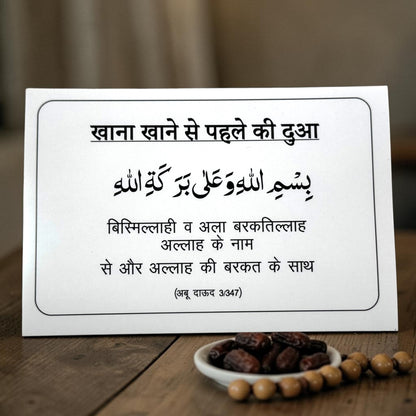 खाना खाने से पहले की दुआ
بِسْمِ اللهِ وَعَلٰى بَرَكَةِ اللهِ
बिस्मिल्लाही व अला बरकतिल्लाह
अल्लाह के नाम
से और अल्लाह की बरकत के साथ
(अबू दाऊद 3/347)